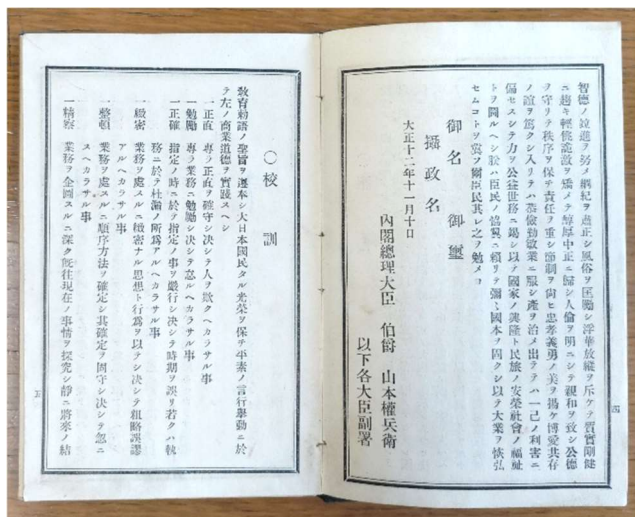 智德ノ竝進ヲ努メ綱紀ヲ肅正シ風俗ヲ匡勵シ浮華放縱ヲ斥ケテ質實剛健
ニ趨キ輕佻詭激ヲ矯メテ醇厚中正ニ歸シ人倫ヲ明ニシテ親和ヲ致シ公德
ヲ守リテ秩序ヲ保チ責任ヲ重シ節制ヲ尚ヒ忠孝義勇ノ美ヲ揚ケ博愛共存
ノ誼ヲ篤クシ入リテハ恭儉勤敏業ニ服シ產ヲ治メ出テテハ一己ノ利害ニ
偏セスシテ力ヲ公益世務ニ竭シ以テ國家ノ興隆ト民族ノ安榮社會ノ福祉
トヲ圖ルヘシ朕ハ臣民ノ協翼ニ賴リテ彌〻國本ヲ固クシ以テ大業ヲ恢弘
セムコトヲ冀フ爾臣民其レ之ヲ勉メヨ
御名 御璽
攝政名
大正十二年十一月十日
內閣總理大臣 伯爵 山本權兵衛
以下各大臣副署
四
○校訓
敎育勅語ノ聖旨ヲ遵奉シ大日本國民タル光榮ヲ保チ平素ノ言行擧動ニ於
テ左ノ商業道德ヲ實踐スヘシ
一正直 專ラ正直ヲ確守シ決シテ人ヲ欺クヘカラサル事
一勉勵 專ラ業務ニ勉勵シ決シテ怠ルヘカラサル事
一正確 指定ノ時ニ於テ指定ノ事ヲ嚴行シ決シテ時期ヲ誤リ若クハ執
務ニ於テ杜漏ノ所爲アルヘカラサル事
一緻密 業務ヲ處スルニ緻密ナル思想ト行爲ヲ以テシ決シテ粗略誤謬
アルヘカラサル事
一整頓 業務ヲ處スルニ順序方法ヲ確定シ其確定ヲ固守シ決シテ忽ニ
スヘカラサル事
一精察 業務ヲ企圖スルニ深ク旣往現在ノ事情ヲ探究シ靜ニ將來ノ結
五